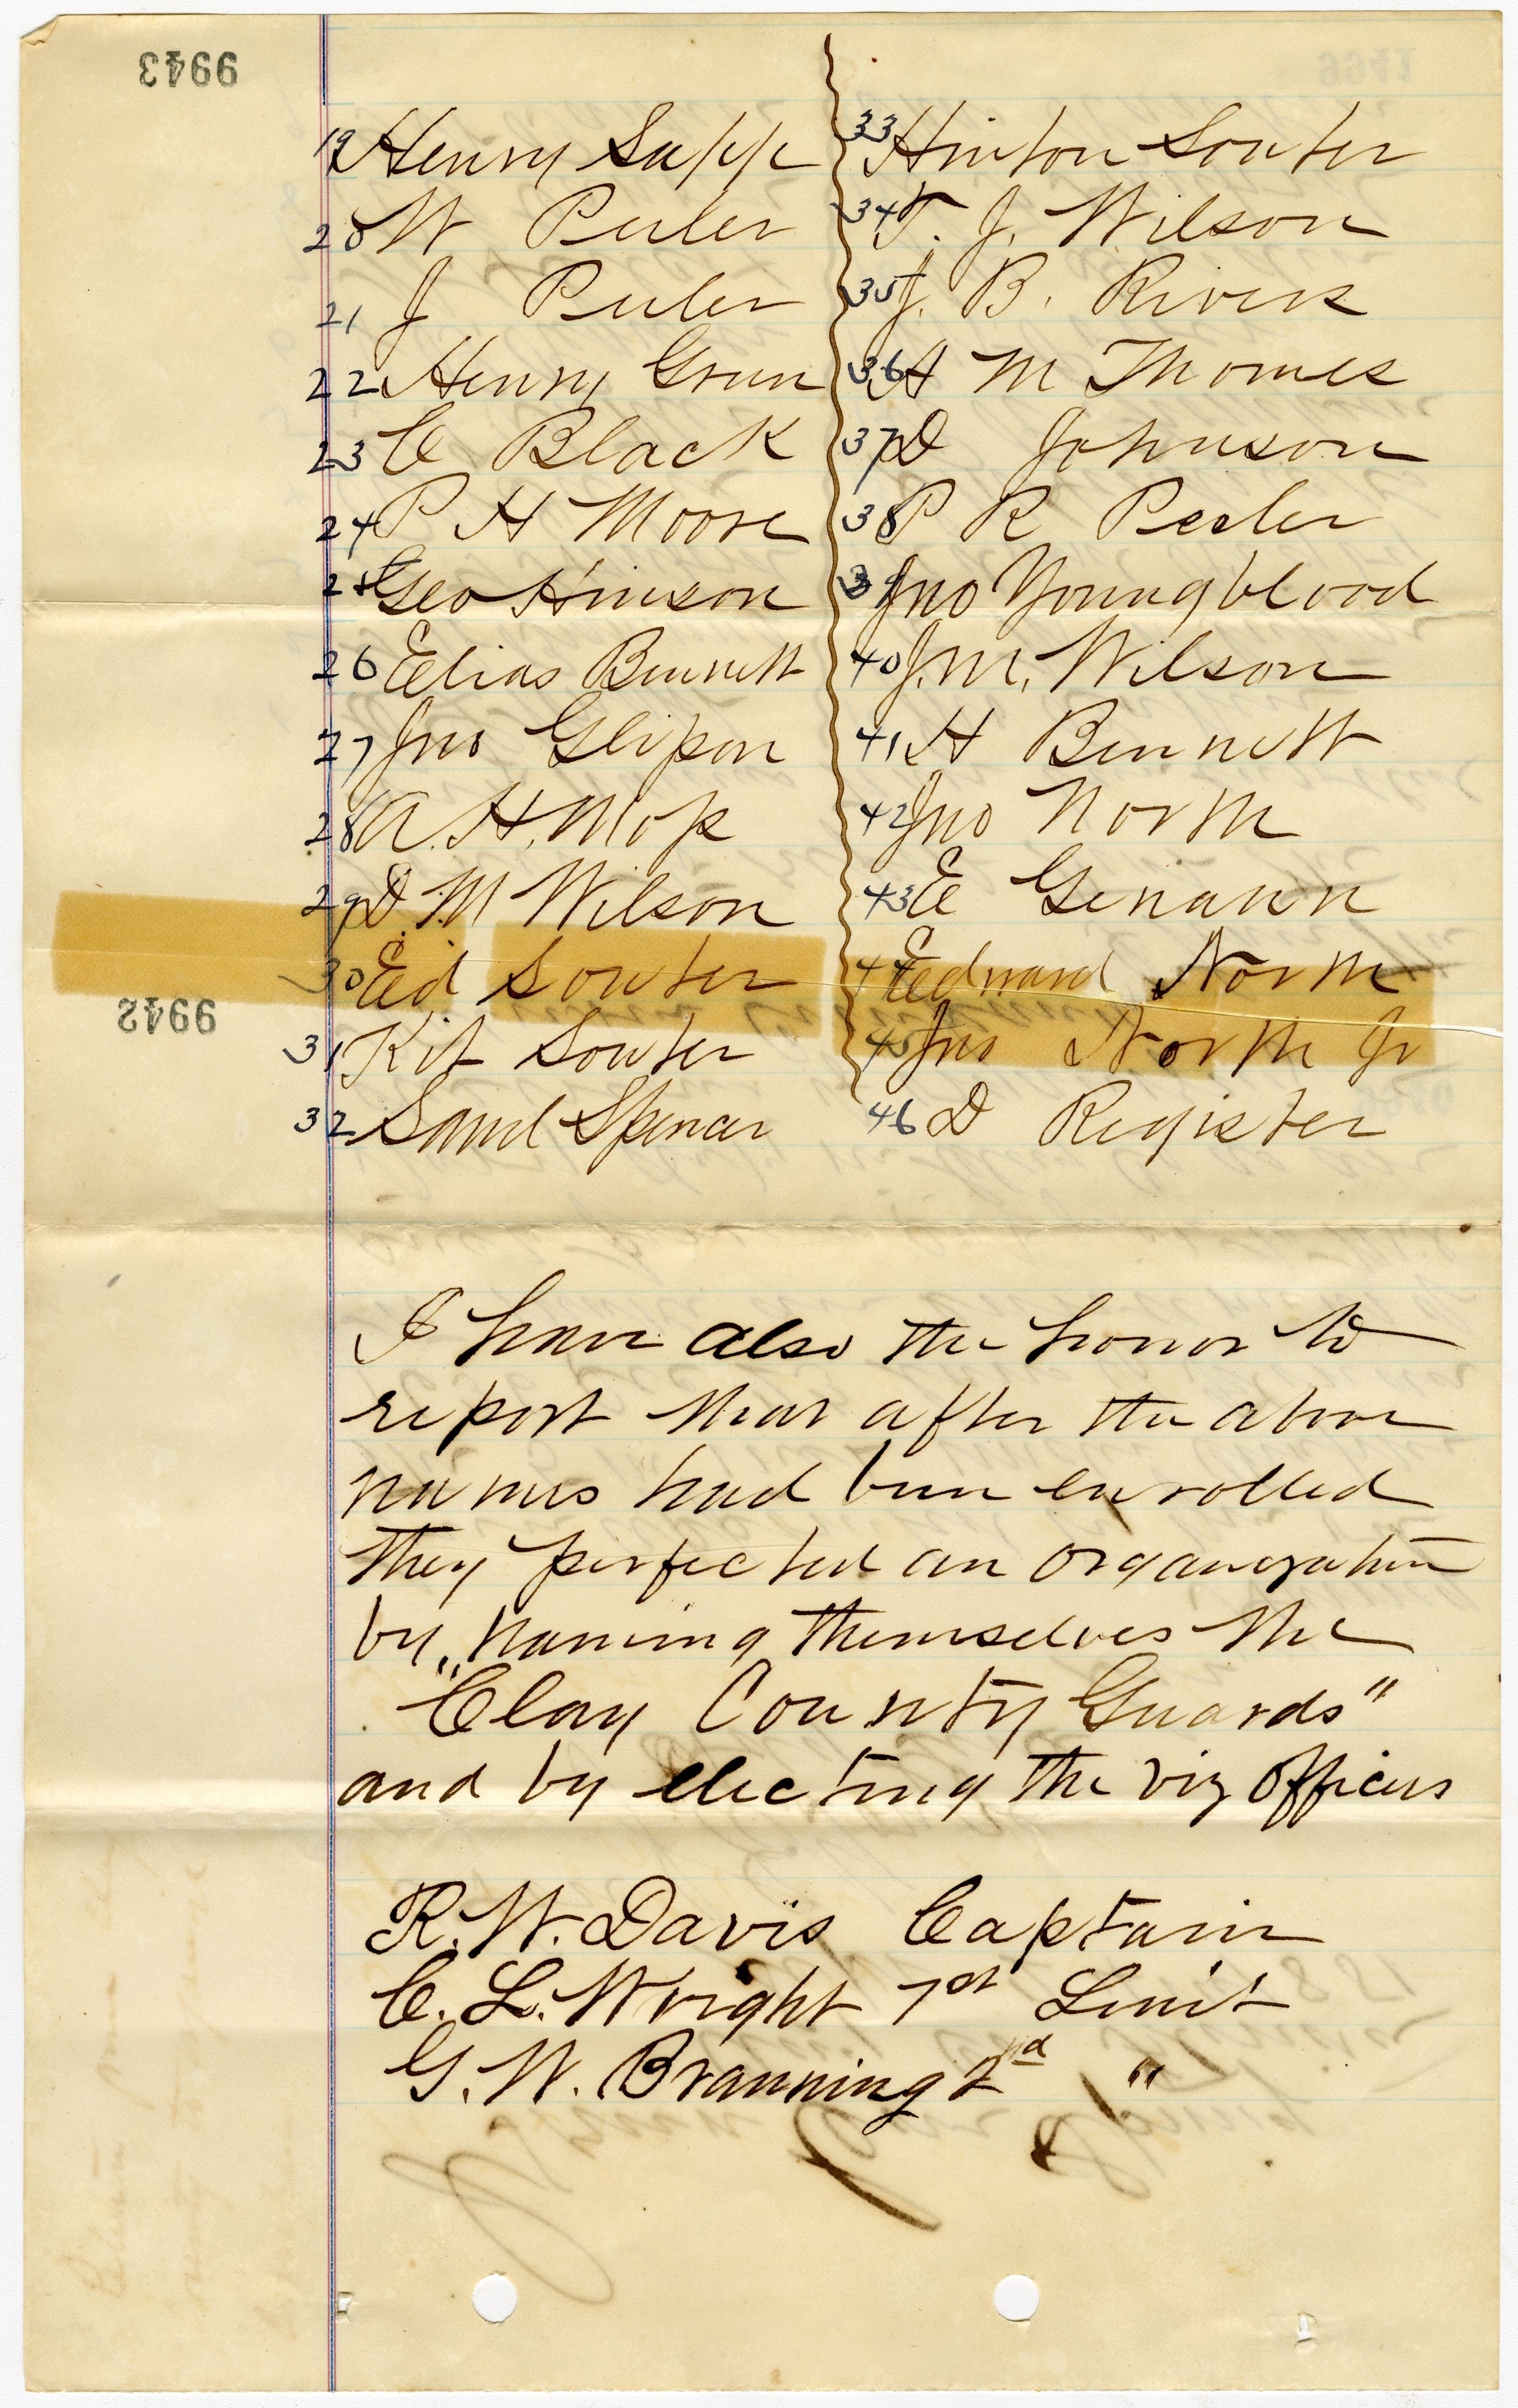 9943
19 Henry Sapp
20 W Peeler
21 J Peeler
22 Henry Green
23 C Black
24 P H Moore
25 Geo Hinson
26 Elias Bennett
27 Jno Glisson
28 A. H. Moss
29 D. M Wilson
30 Ed Souter
31 Kit Souter
32 Saml Spencer
33 Hinton Souter
34 T. J. Wilson
35 J. B. Rivers
36 A M Thomas
37 D Johnson
38 P R Peeler
39 Jno Youngblood
40 J. M. Wilson
41 H Bennett
42 Jno North
43 E
44 Edward North
45 Jno North Jr
46 D Register
9942
I have also the honor to
report that after the above
names had been enrolled
they perfected an organization
by naming themselves the
"Clay County Guards"
and by electing the viz officers
R. W. Davis Captain
C. L. Wright 1st Lieut
G. W. Branning 2nd "